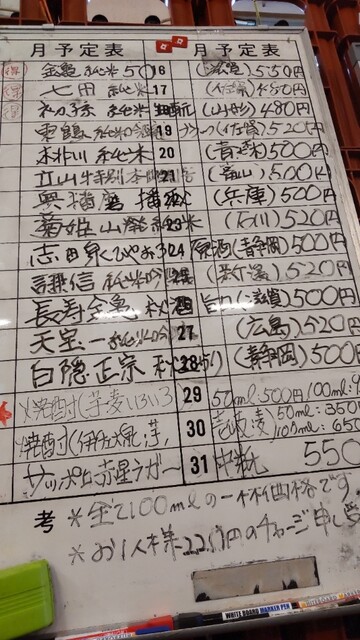 月予定表 月予定表
金亀 純米50 16 (滋賀)550円
七田 純米 17 (佐賀)480円
初孫 純米 (山形)480円
東鶴 純米吟 19 (佐賀)520円
純米 20 500円
立山 特別本 21 (富山)500円
奥播磨 播秋 (兵庫)500円
菊姫 山廃純23米 (石川)520円
志田泉ひやおろ24 原酒(静岡)500円
謙信 純米吟 520円
長寿金亀 秋 (滋賀)500円
天宝一 純米吟 27 (広島)520円
白隠正宗 秋28 (静岡)500
焼酎(芋麦いろいろ 29 50ml:500円/100ml:
焼酎(伊佐大泉(芋) 30 壱岐(麦) 50ml:350 100ml:650
サッポロ赤星ラガー 31 中瓶 550
考 *全て100mlの一杯価格です
*お1人様220円のチャージ申し受
WHITE BOARD MARKER PEN